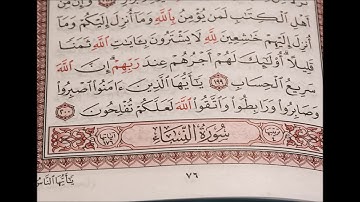 أَهْلِ ٱلْكِتَٰبِ لَمَن يُؤْمِنُ بِٱللَّهِ وَمَآ أُنزِلَ إِلَيْكُمْ وَمَآ
أُنزِلَ إِلَيْهِمْ خَٰشِعِينَ لِلَّهِ لَا يَشْتَرُونَ بِـَٔايَٰتِ ٱللَّهِ ثَمَنًا
قَلِيلًا ۗ أُو۟لَٰٓئِكَ لَهُمْ أَجْرُهُمْ عِندَ رَبِّهِمْ ۗ إِنَّ ٱللَّهَ
سَرِيعُ ٱلْحِسَابِ ١٩٩ يَٰٓأَيُّهَا ٱلَّذِينَ ءَامَنُوا۟ ٱصْبِرُوا۟
وَصَابِرُوا۟ وَرَابِطُوا۟ وَٱتَّقُوا۟ ٱللَّهَ لَعَلَّكُمْ تُفْلِحُونَ ٢٠٠
سُورَةُ ٱلنِّسَاءِ
٧٦
يَٰٓأَيُّهَا ٱلنَّاسُ